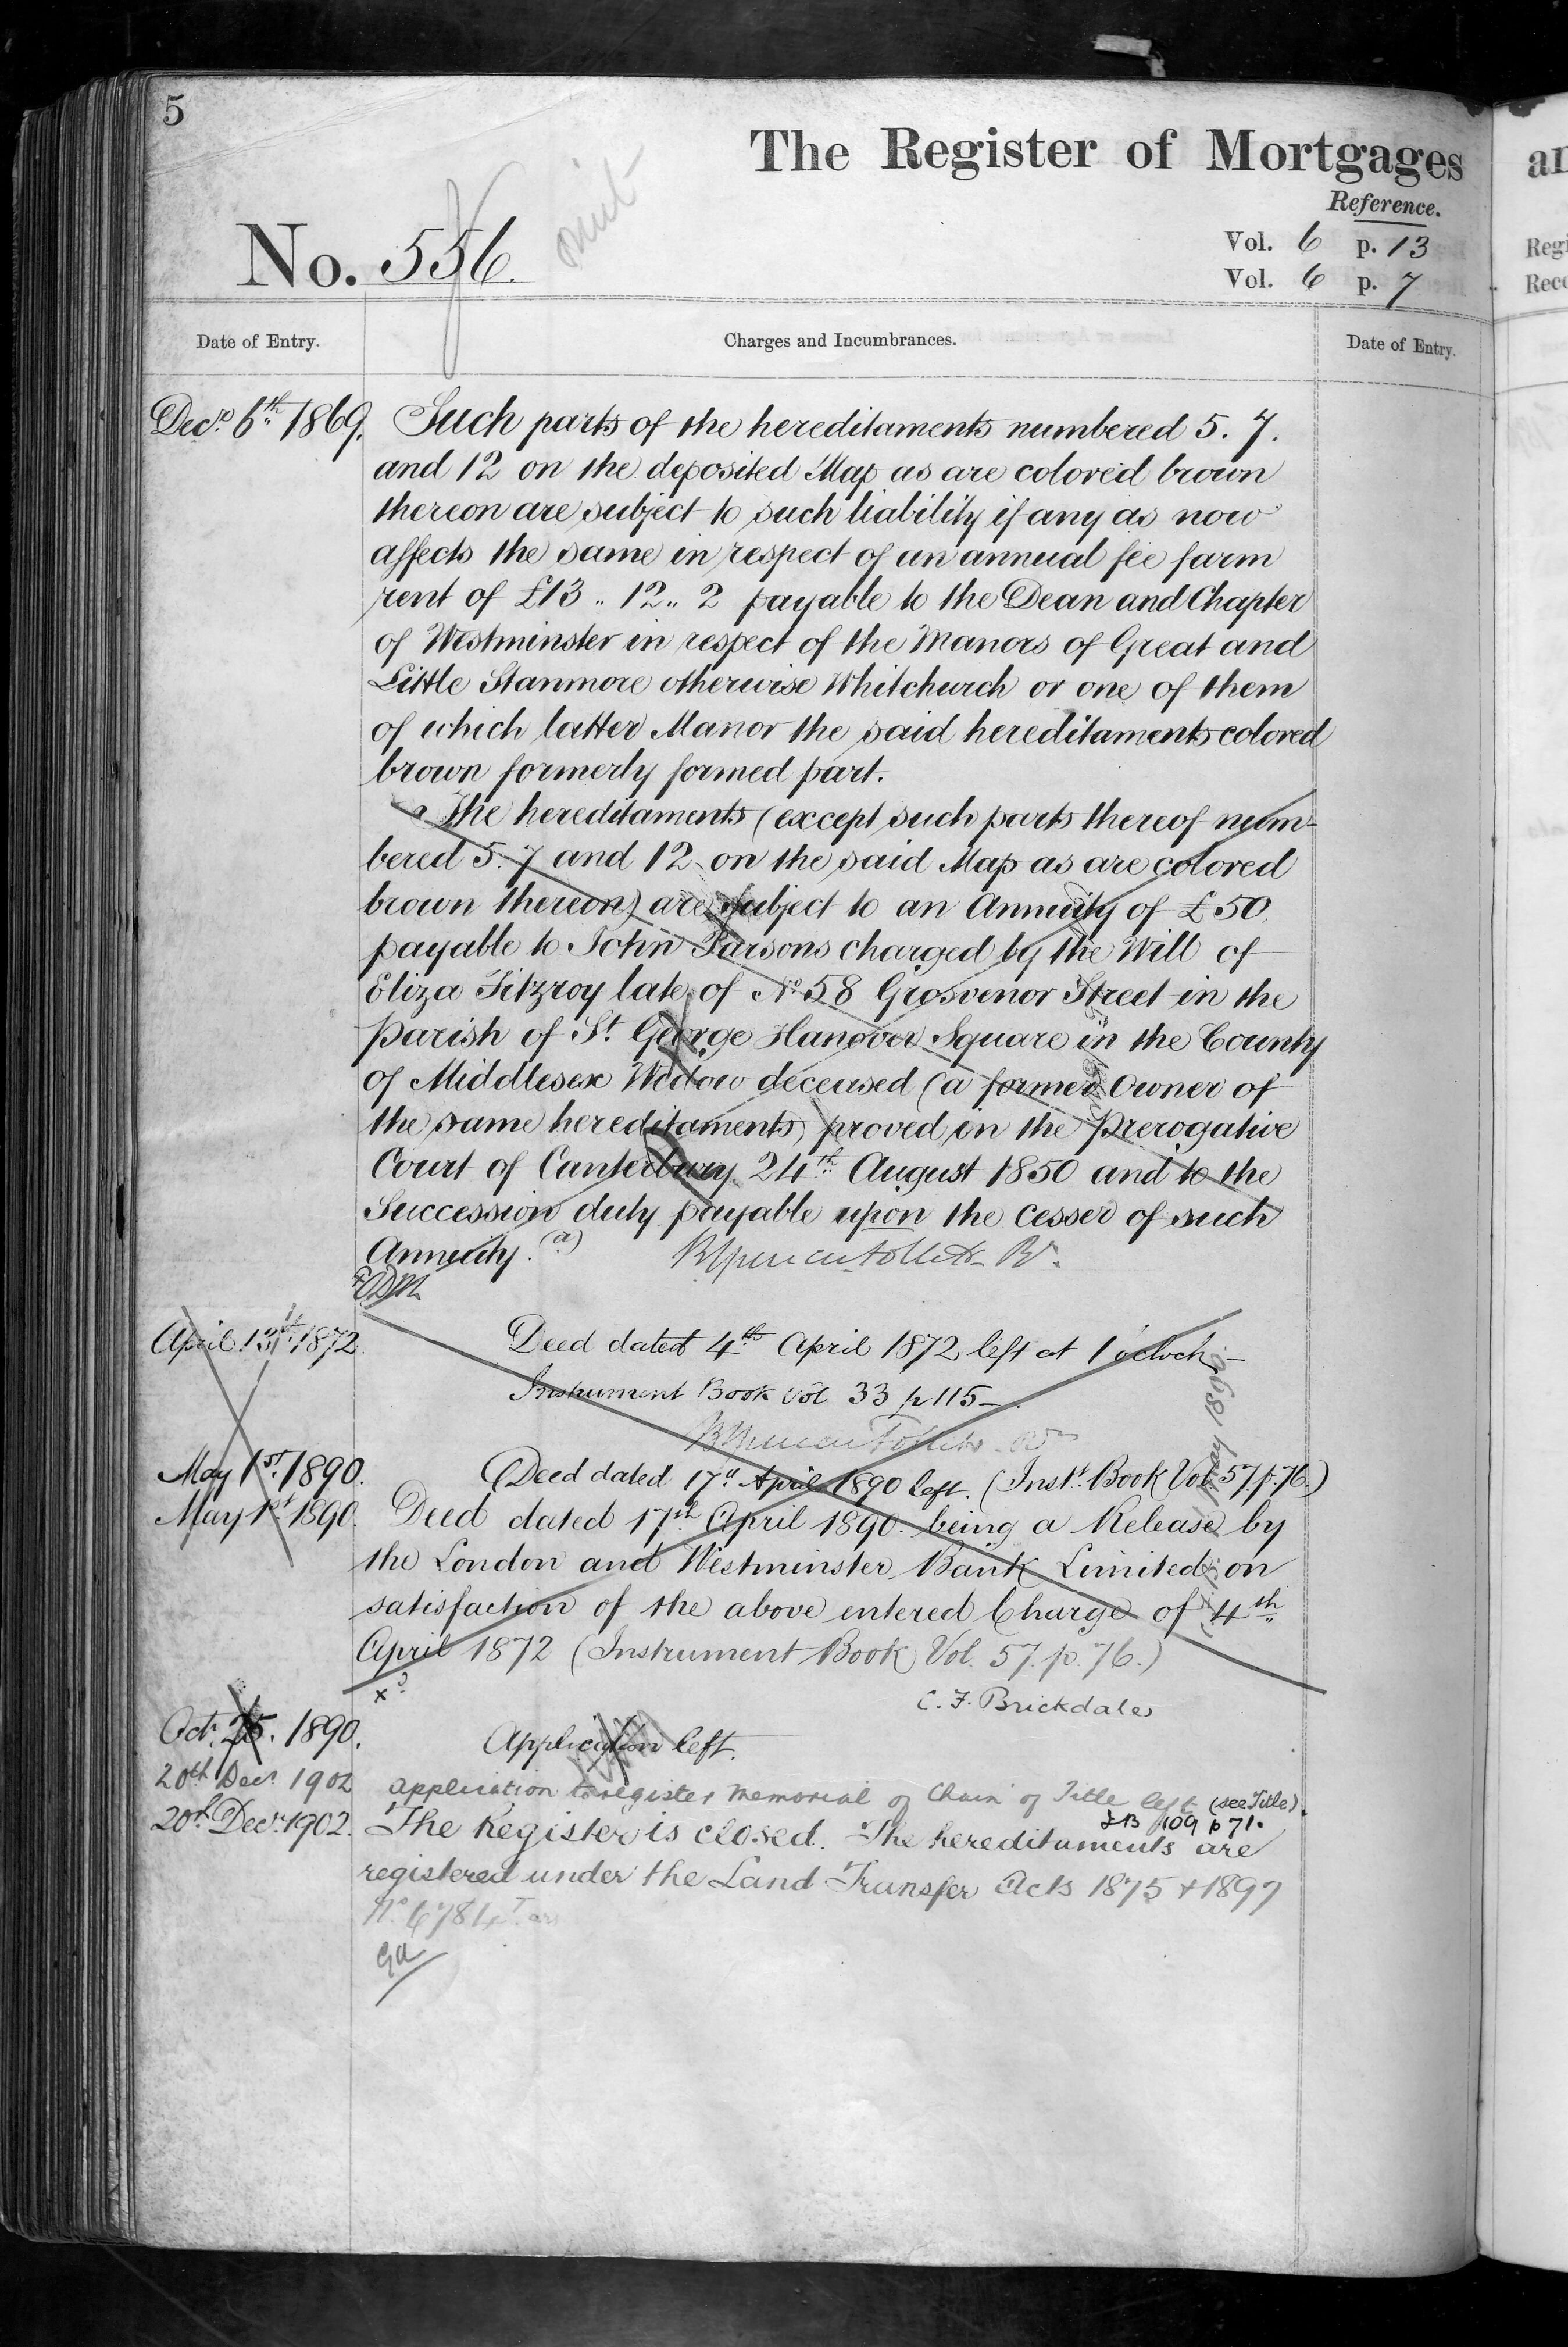 5
The Register of Mortgages
Reference.
No. 556.
omit
Vol. 6 p. 13
Vol. 6 p. 7
Date of Entry.
Charges and Incumbrances.
Date of Entry.
Decr. 6th 1869.
Such parts of the hereditaments numbered 5. 7.
and 12 on the deposited Map as are colored brown
thereon are subject to such liability if any as now
affects the same in respect of an annual fee farm
rent of £13 .. 12 .. 2 payable to the Dean and Chapter
of Westminster in respect of the Manors of Great and
Little Stanmore otherwise Whitchurch or one of them
of which latter Manor the said hereditaments colored
brown formerly formed part.
The hereditaments (except such parts thereof num-
bered 5. 7 and 12 on the said Map as are colored
brown thereon) are subject to an Annuity of £50
payable to John Parsons charged by the Will of
Eliza Fitzroy late of No. 58 Grosvenor Street in the
Parish of St. George Hanover Square in the County
of Middlesex Widow deceased (a former Owner of
the same hereditaments) proved in the Prerogative
Court of Canterbury 24th August 1850 and to the
Succession duty payable upon the cesser of such
Annuity. (a)
April 13th 1872.
Deed dated 4th April 1872 left at 1 o'clock
Instrument Book Vol 33 p 115
May 1st. 1890.
(Deed dated 17th April 1890 left. (Inst. Book Vol. 57. p. 76.)
May 1st 1890.
Deed dated 17th April 1890. being a Release by
the London and Westminster Bank Limited on
satisfaction of the above entered Charge of 4th
April 1872 (Instrument Book Vol. 57. p. 76.)
May 1890
C. F. Brickdale
Oct. 25. 1890.
Application left.
20th Decr 1902
application to register memorial of Chain of Title left (see Title).
109 p 71.
20th Decr. 1902.
The Register is closed. The hereditaments are
registered under the Land Transfer Acts 1875 + 1897